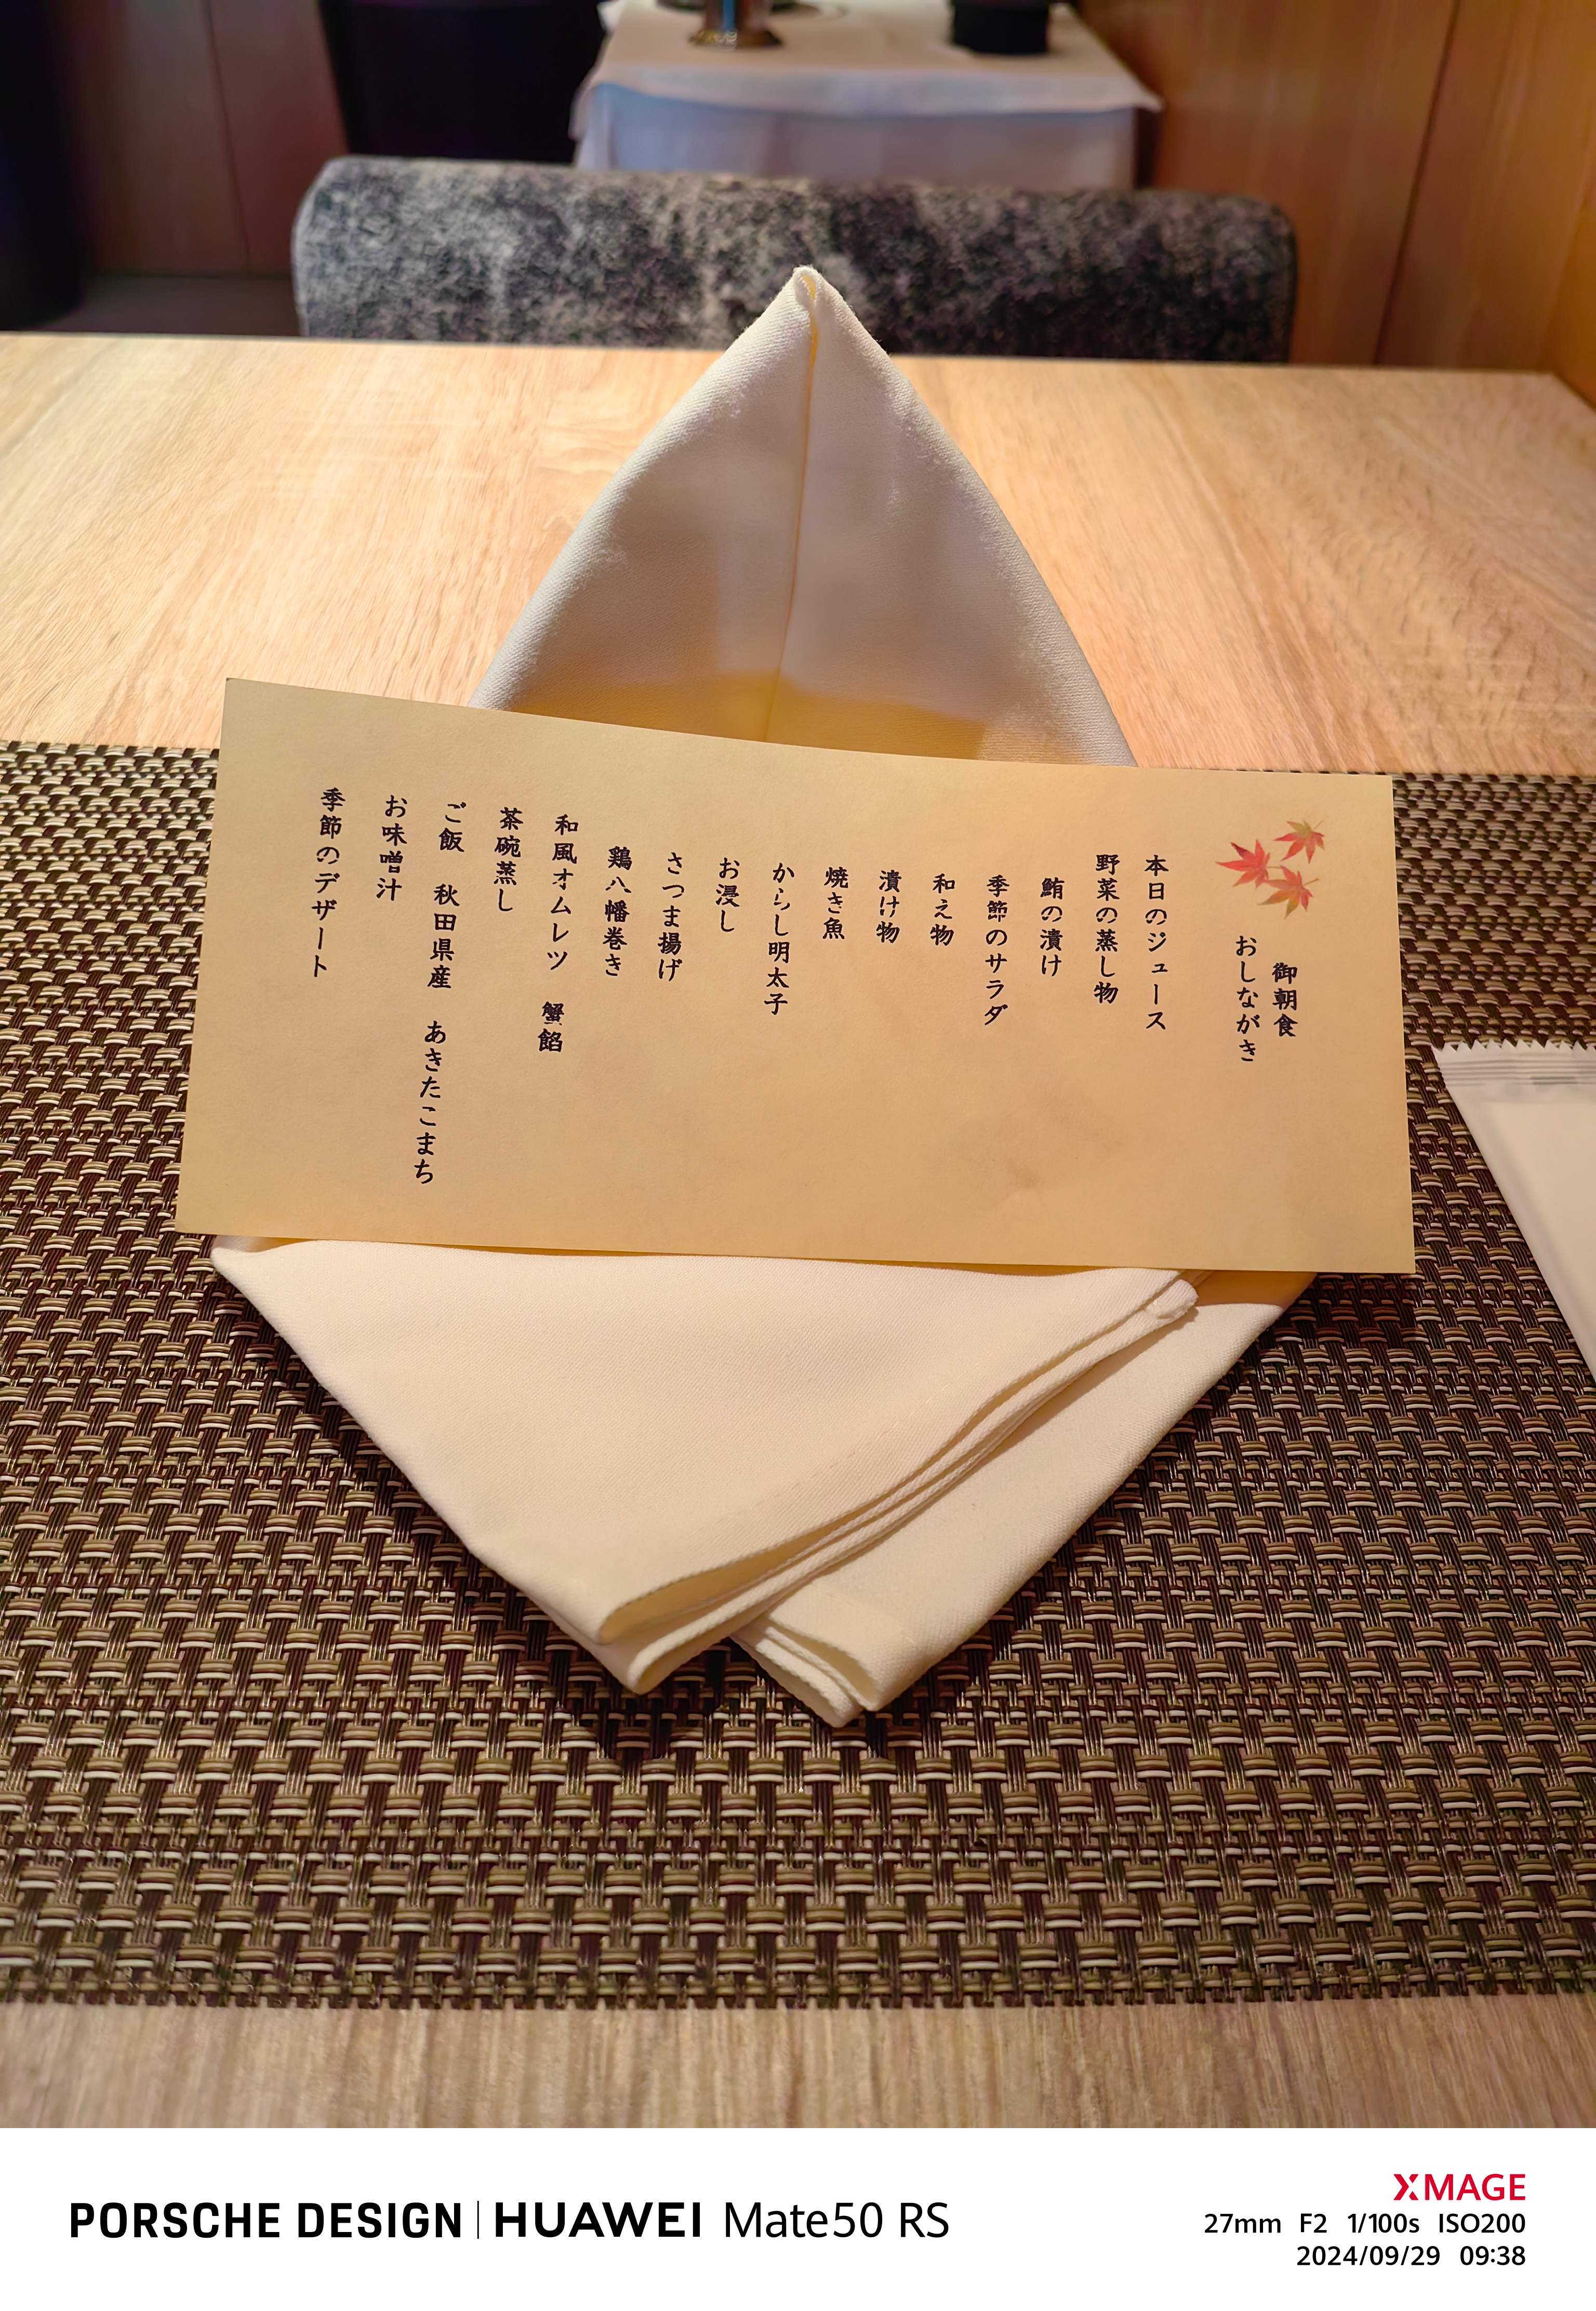 御朝食
おしながき
本日のジュース
野菜の蒸し物
鮪の漬け
季節のサラダ
和え物
漬け物
焼き魚
からし明太子
お浸し
さつま揚げ
鶏八幡巻き
和風オムレツ　蟹餡
茶碗蒸し
ご飯　秋田県産　あきたこまち
お味噌汁
季節のデザート
PORSCHE DESIGN | HUAWEI Mate50 RS
XMAGE
27mm F2 1/100s ISO200
2024/09/29 09:38